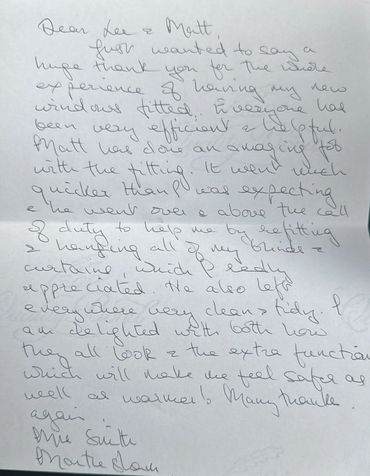 Dear Lee & Matt,
Just wanted to say a
huge thank you for the whole
experience of having my new
windows fitted. Everyone has
been very efficient & helpful.
Matt has done an amazing job
with the fitting. It went much
quicker than I was expecting
& he went over & above the call
of duty to help me by refitting
& hanging all of my blinds &
curtains, which I really
appreciated. He also left
everywhere very clean & tidy. I
am delighted with both how
they all look & the extra function
which will make me feel safer as
well as warmer! Many thanks
again.
Mrs Smith